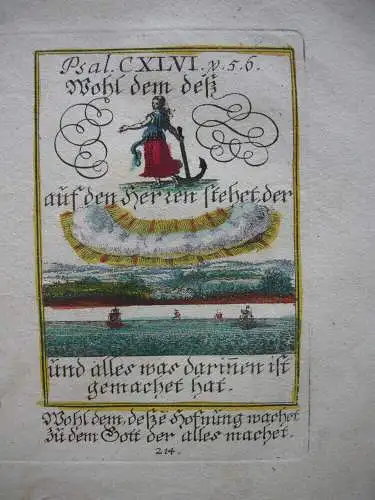 Psal. CXLVI. v. 5. 6.
Wohl dem deß
auf den Herren stehet. der
und alles was dariñen ist
gemachet hat.
Wohl dem, deßē Hofnung wachet
Zu dem Gott der alles machet.
214.